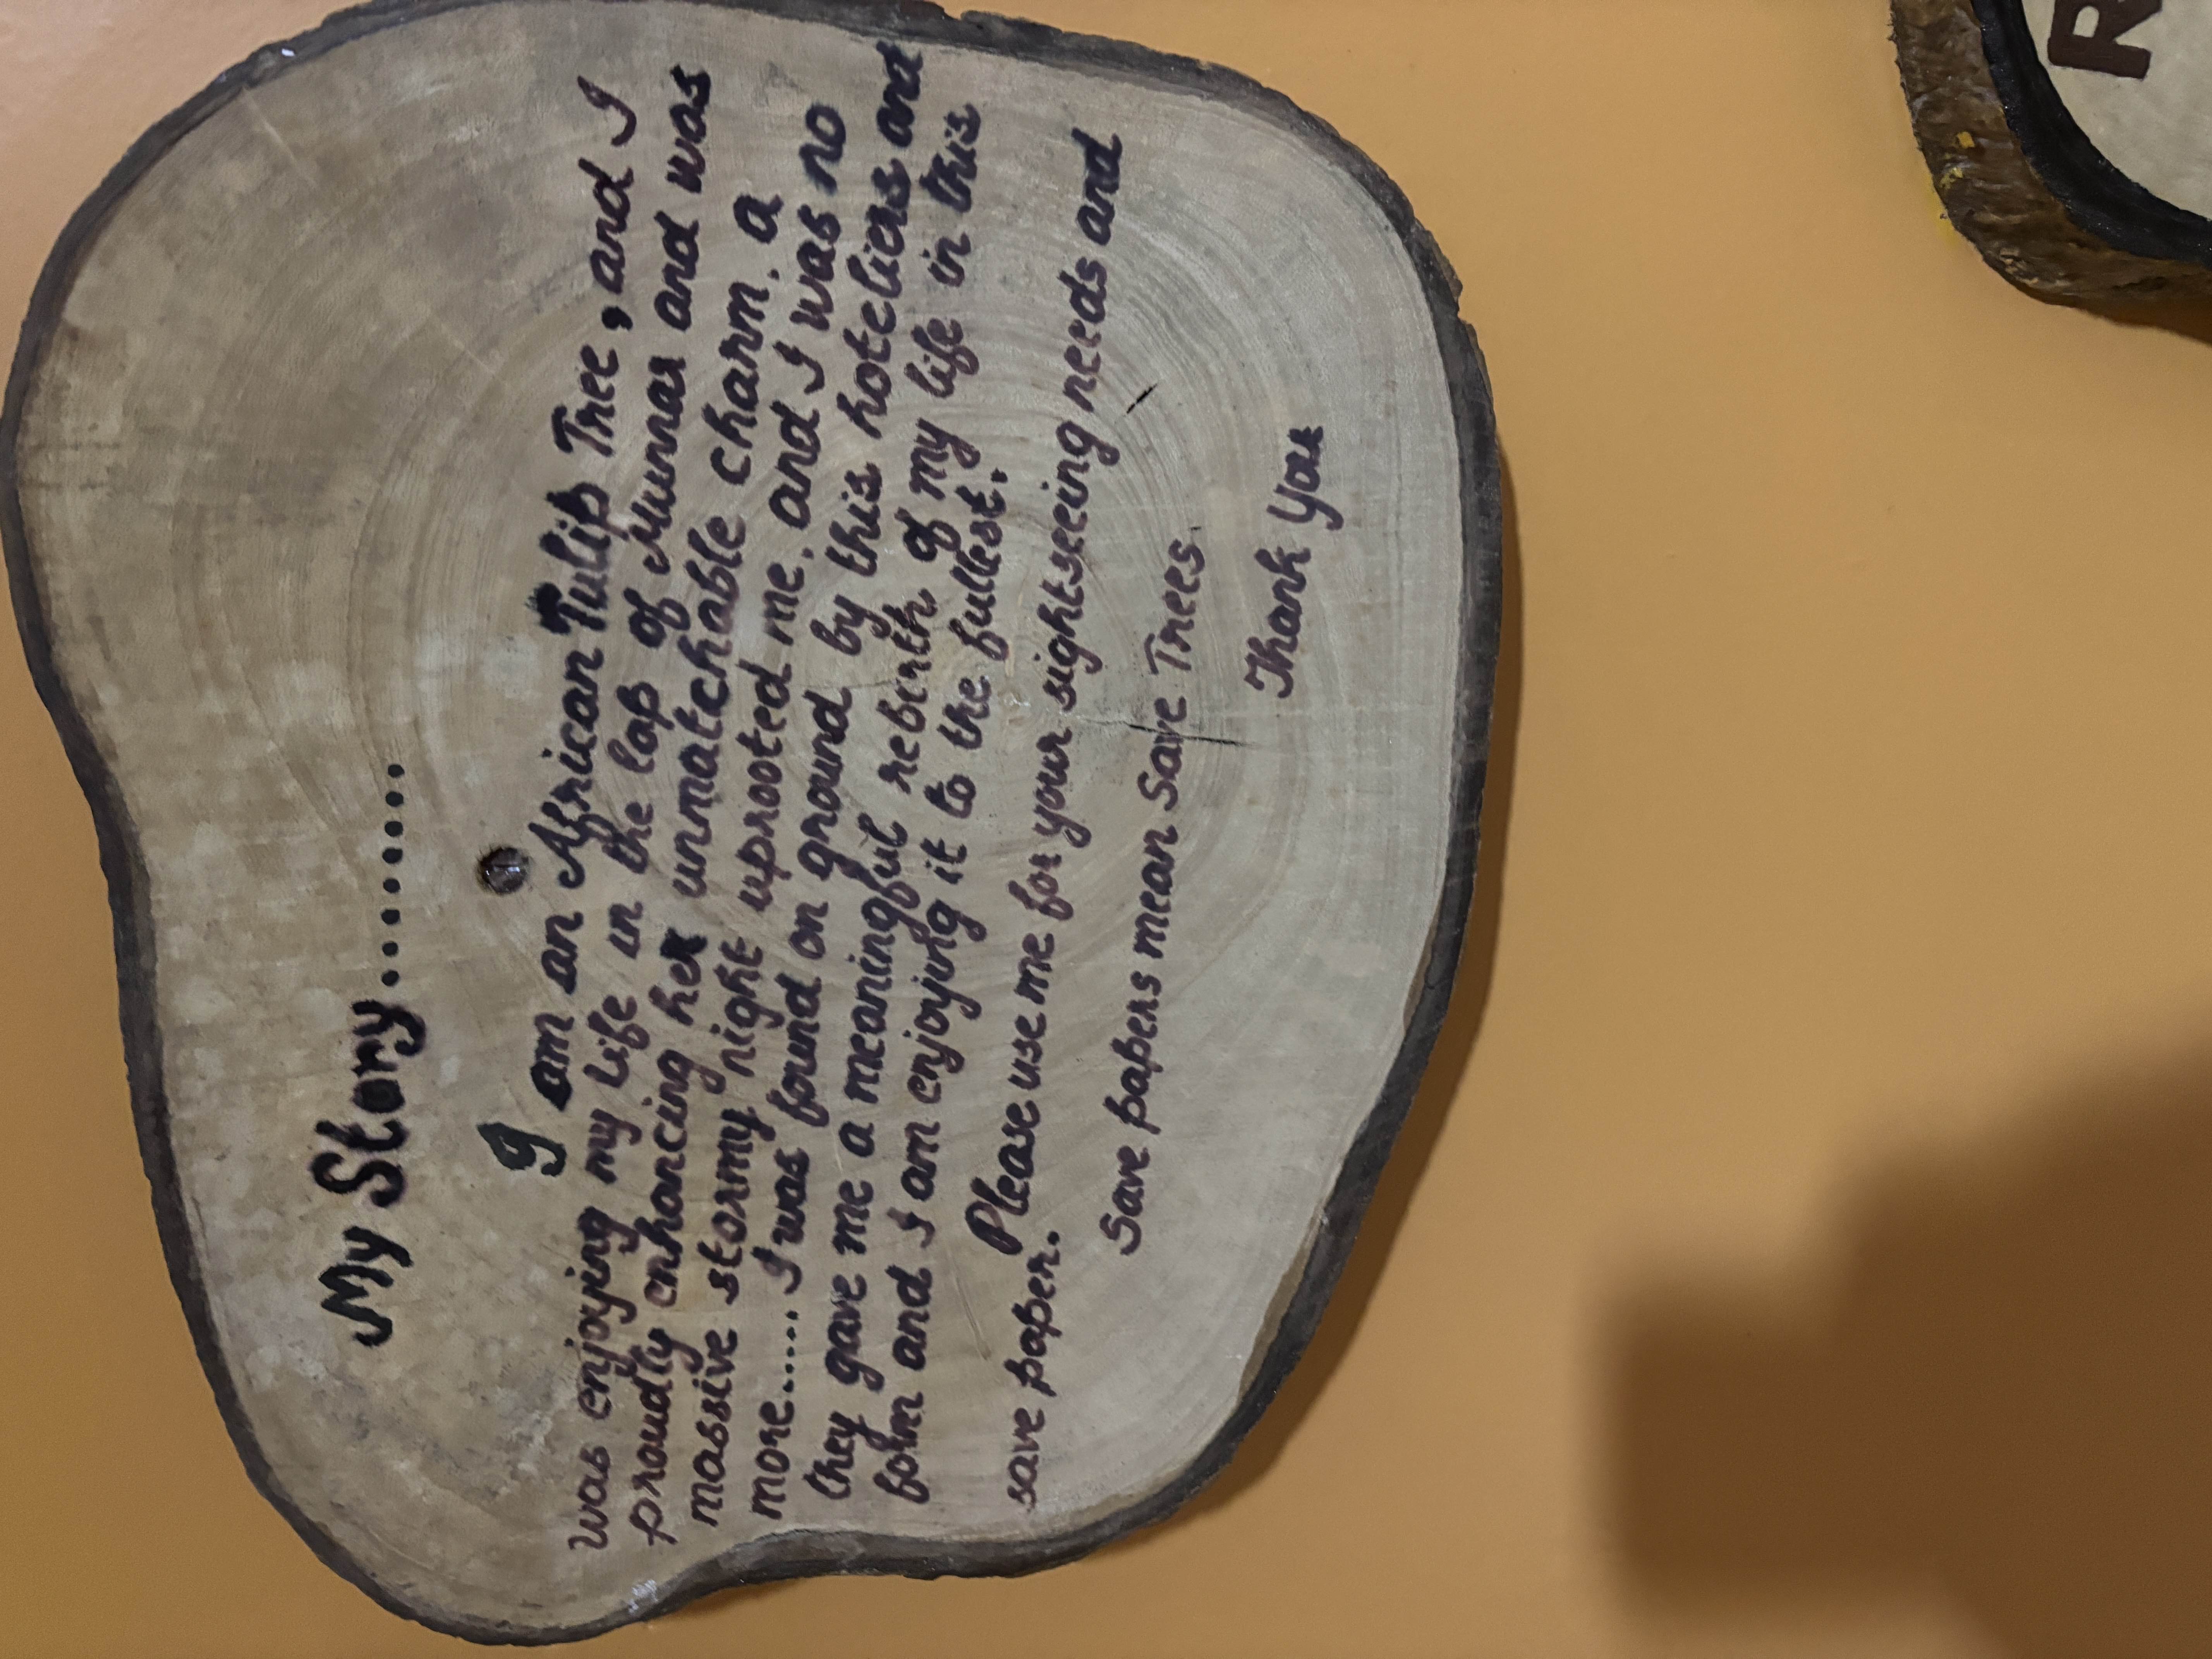 My Story...........
I am an African Tulip Tree, and I
was enjoying my life in the lap of Munnar and was
proudly enhancing her unmatechable charm. a
massive stormy night uprooted me. and I was no
more...... I was found on ground by this hoteliers and
they gave me a meaningful rebirth of my life in this
form and I am enjoying it to the fullest.
Please use me for your sightseeing needs and
save paper.
Save papers mean Save Trees.
Thank You
R